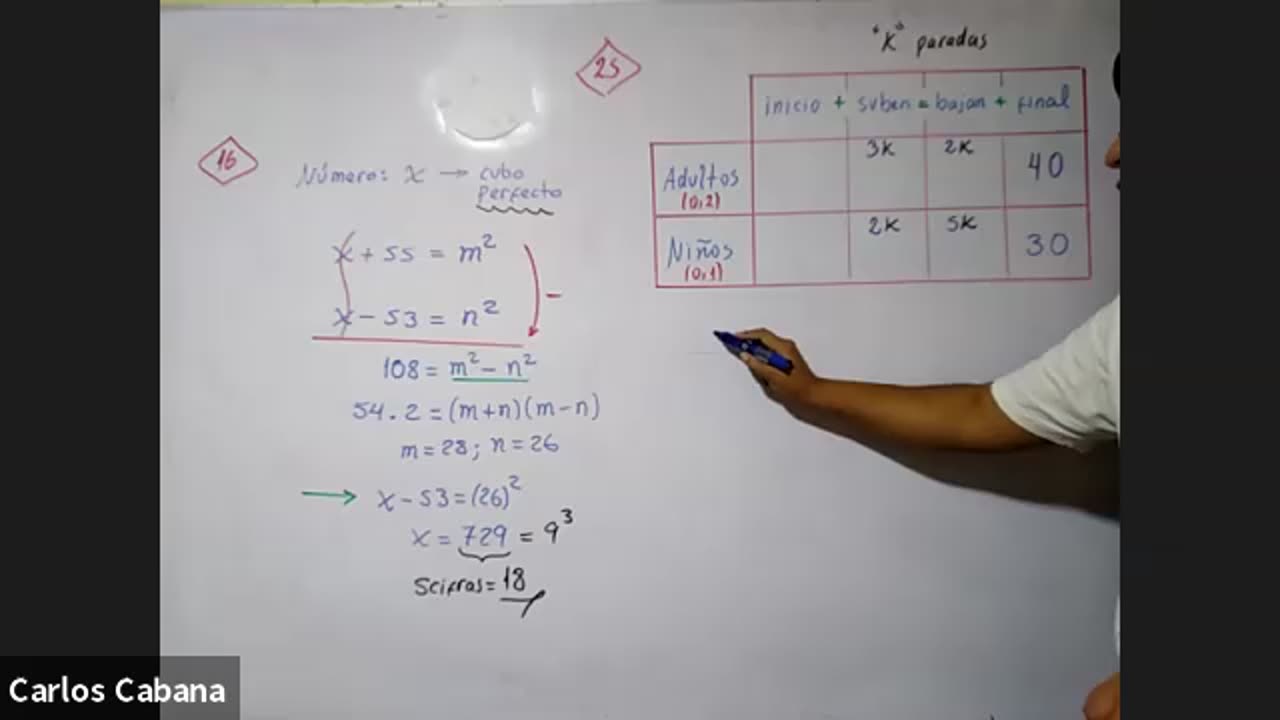 16
Número: x → cubo
perfecto
x + 55 = m²
x - 53 = n²
-
108 = m² - n²
54 . 2 = (m+n)(m-n)
m = 28; n = 26
→ x - 53 = (26)²
x = 729 = 9³
Scifras = 18
25
"K" paradas
inicio + suben = bajan + final
Adultos 3K 2K 40
(0,2)
Niños 2K 5K 30
(0,1)
Carlos Cabana